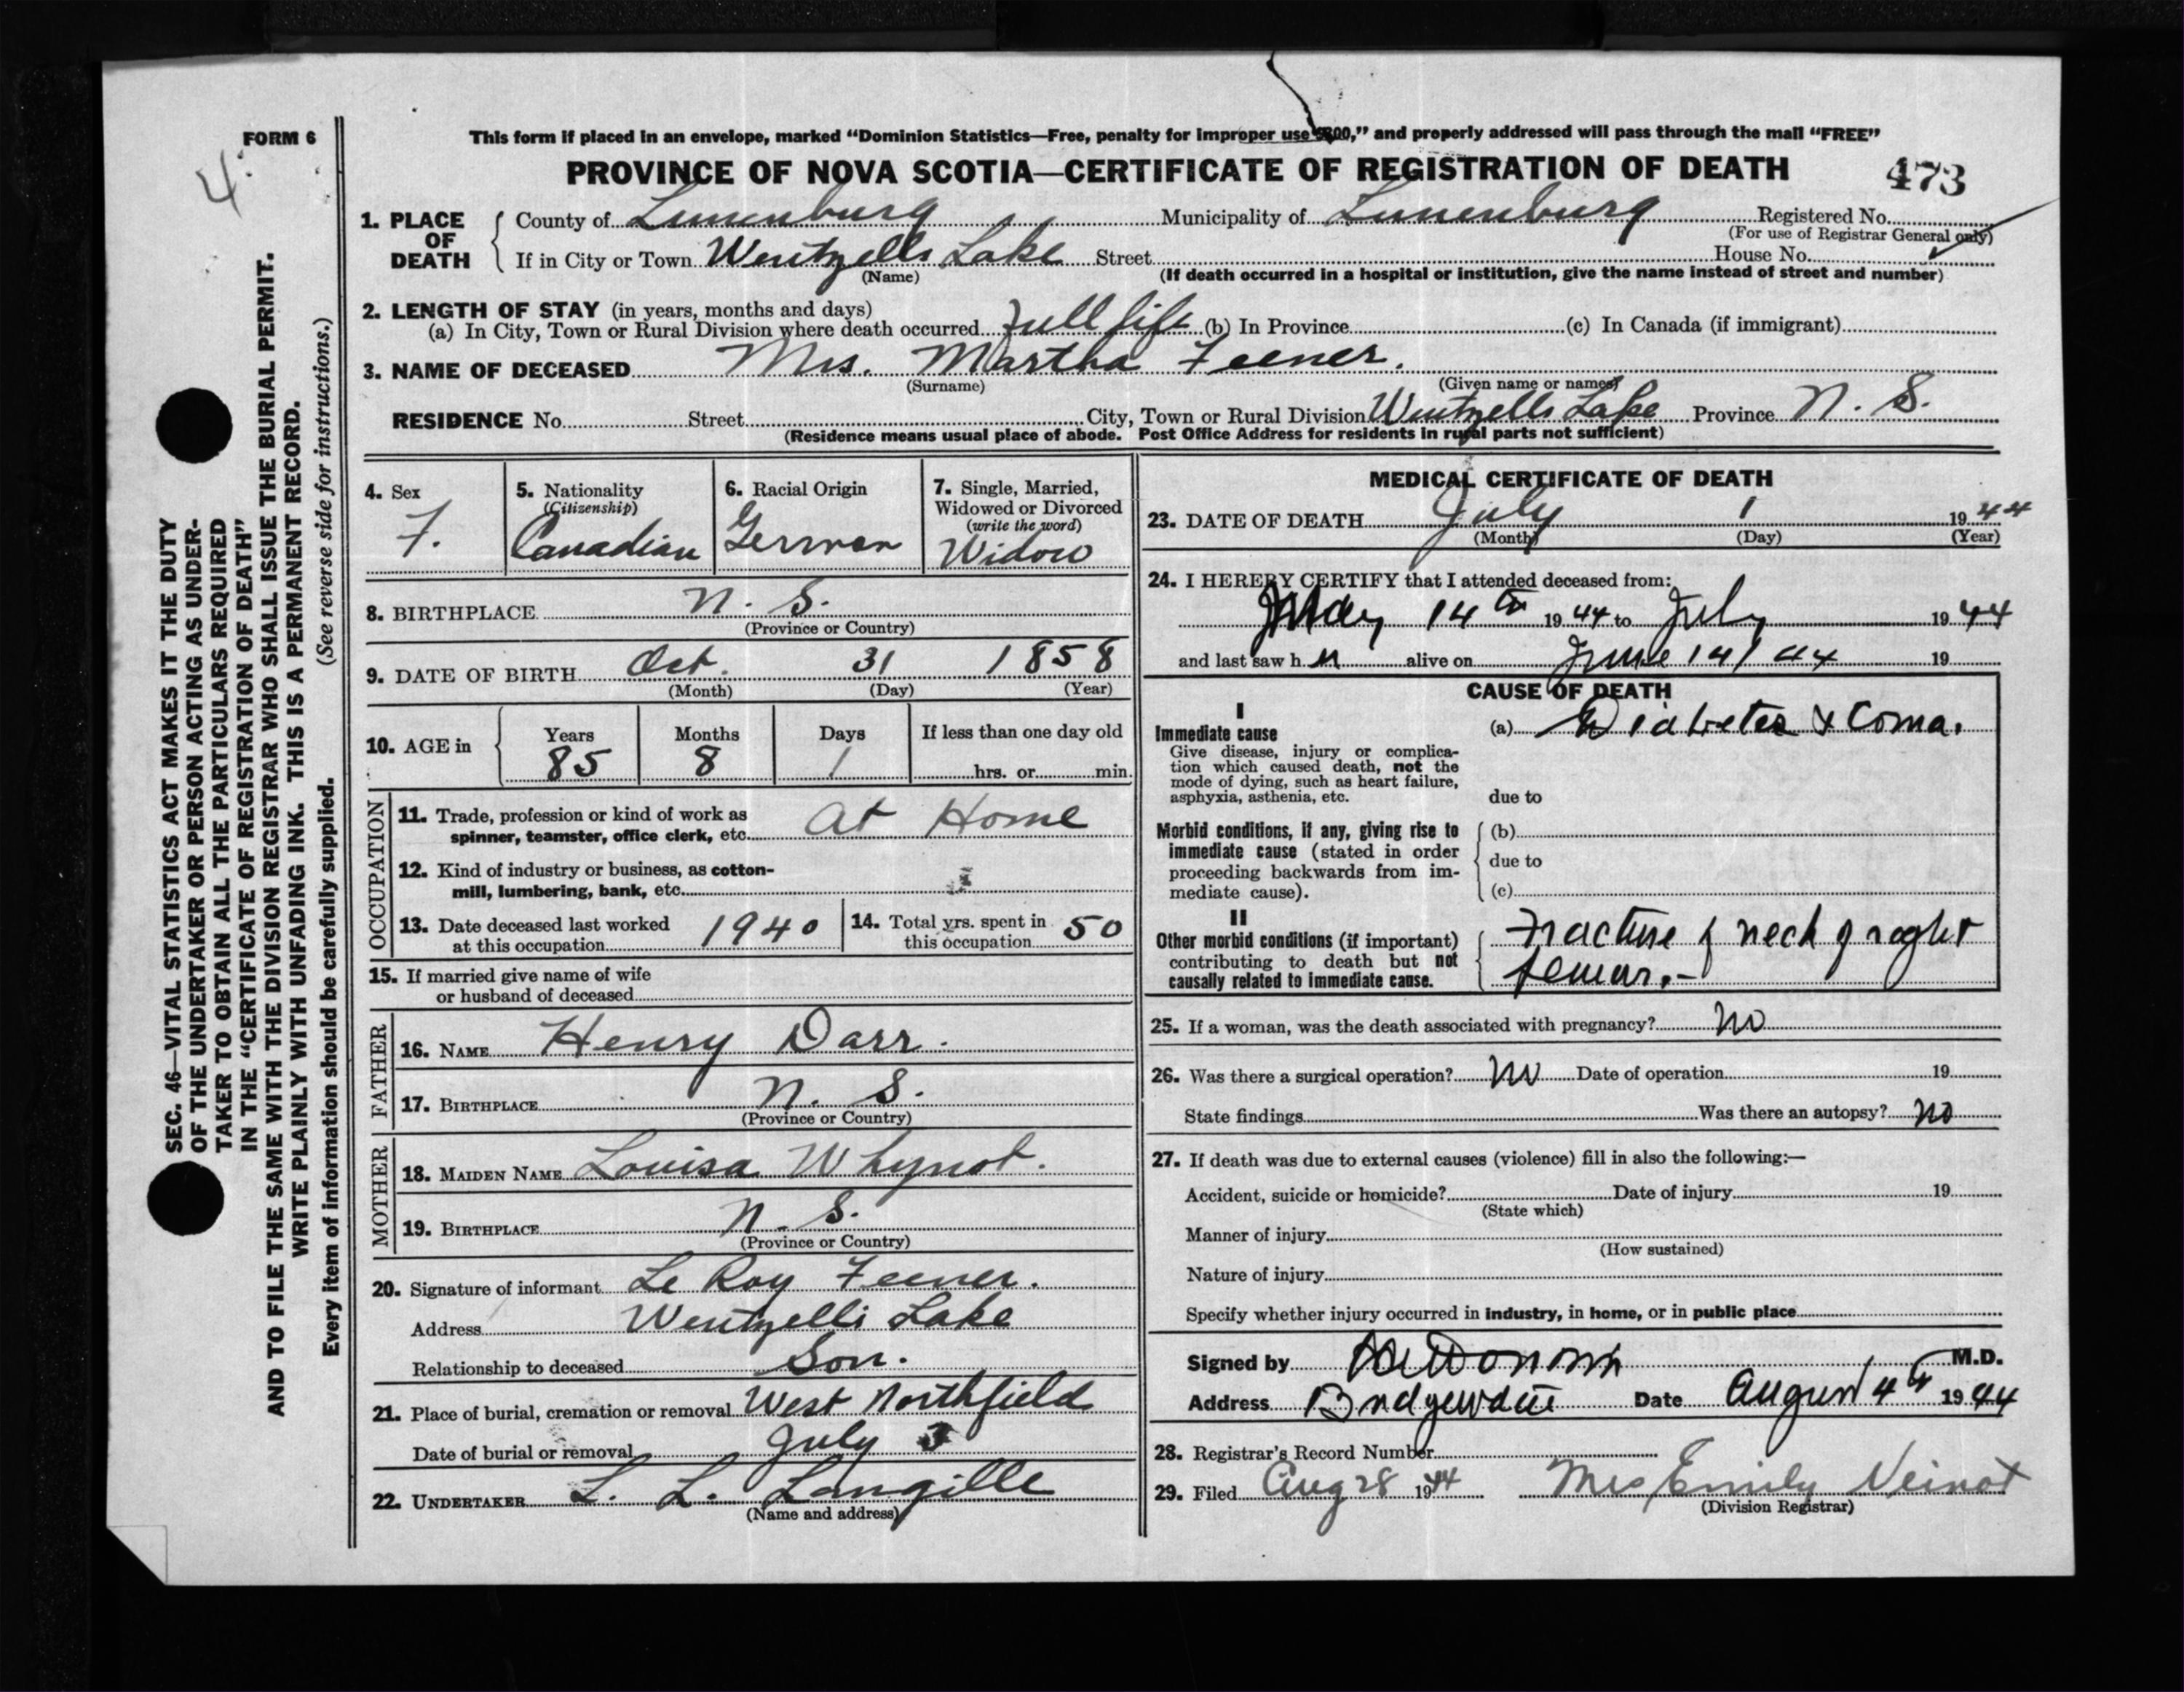 FORM 6
4.
This form if placed in an envelope, marked “Dominion Statistics—Free, penalty for improper use $300,” and properly addressed will pass through the mail “FREE”
PROVINCE OF NOVA SCOTIA—CERTIFICATE OF REGISTRATION OF DEATH 473
1. PLACE OF DEATH County of Lunenburg Municipality of Lunenburg Registered No.
(For use of Registrar General only)
If in City or Town Wentzells Lake Street House No.
(Name) (If death occurred in a hospital or institution, give the name instead of street and number)
2. LENGTH OF STAY (in years, months and days)
(a) In City, Town or Rural Division where death occurred Full life (b) In Province (c) In Canada (if immigrant)
3. NAME OF DECEASED Mrs. Martha Feener.
(Surname) (Given name or names)
RESIDENCE No. Street City, Town or Rural Division Wentzells Lake Province N. S.
(Residence means usual place of abode. Post Office Address for residents in rural parts not sufficient)
4. Sex F.
5. Nationality (Citizenship) Canadian
6. Racial Origin German
7. Single, Married, Widowed or Divorced (write the word) Widow
8. BIRTHPLACE N. S.
(Province or Country)
9. DATE OF BIRTH Oct. 31 1858
(Month) (Day) (Year)
10. AGE in Years 85 Months 8 Days 1 If less than one day old
hrs. or min.
OCCUPATION
11. Trade, profession or kind of work as
spinner, teamster, office clerk, etc. At Home
12. Kind of industry or business, as cotton-
mill, lumbering, bank, etc.
13. Date deceased last worked
at this occupation 1940
14. Total yrs. spent in
this occupation 50
15. If married give name of wife
or husband of deceased
FATHER
16. NAME Henry Darr.
17. BIRTHPLACE N. S.
(Province or Country)
MOTHER
18. MAIDEN NAME Louisa Whynot.
19. BIRTHPLACE N. S.
(Province or Country)
20. Signature of informant Le Roy Feener.
Address Wentzells Lake
Relationship to deceased Son.
21. Place of burial, cremation or removal West Northfield
Date of burial or removal July 3
22. UNDERTAKER L. L. Langille
(Name and address)
MEDICAL CERTIFICATE OF DEATH
23. DATE OF DEATH July 1 1944
(Month) (Day) (Year)
24. I HEREBY CERTIFY that I attended deceased from:
14th 1944 to July 1944
and last saw h alive on June 14/44 19
CAUSE OF DEATH
I
Immediate cause
Give disease, injury or complica-
tion which caused death, not the
mode of dying, such as heart failure,
asphyxia, asthenia, etc.
(a) Diabetes & Coma.
due to
Morbid conditions, if any, giving rise to
immediate cause (stated in order
proceeding backwards from im-
mediate cause).
(b)
due to
(c)
II
Other morbid conditions (if important)
contributing to death but not
causally related to immediate cause.
Fracture of neck of right
femur.-
25. If a woman, was the death associated with pregnancy? No
26. Was there a surgical operation? No Date of operation 19
State findings Was there an autopsy? No
27. If death was due to external causes (violence) fill in also the following:—
Accident, suicide or homicide? Date of injury 19
(State which)
Manner of injury
(How sustained)
Nature of injury
Specify whether injury occurred in industry, in home, or in public place
Signed by M.D.
Address Bridgewater Date August 4th 1944
28. Registrar's Record Number
29. Filed Aug 28 1944 Mrs Emily Veinot
(Division Registrar)
SEC. 46—VITAL STATISTICS ACT MAKES IT THE DUTY
OF THE UNDERTAKER OR PERSON ACTING AS UNDER-
TAKER TO OBTAIN ALL THE PARTICULARS REQUIRED
IN THE “CERTIFICATE OF REGISTRATION OF DEATH”
AND TO FILE THE SAME WITH THE DIVISION REGISTRAR WHO SHALL ISSUE THE BURIAL PERMIT.
WRITE PLAINLY WITH UNFADING INK. THIS IS A PERMANENT RECORD.
Every item of information should be carefully supplied. (See reverse side for instructions.)